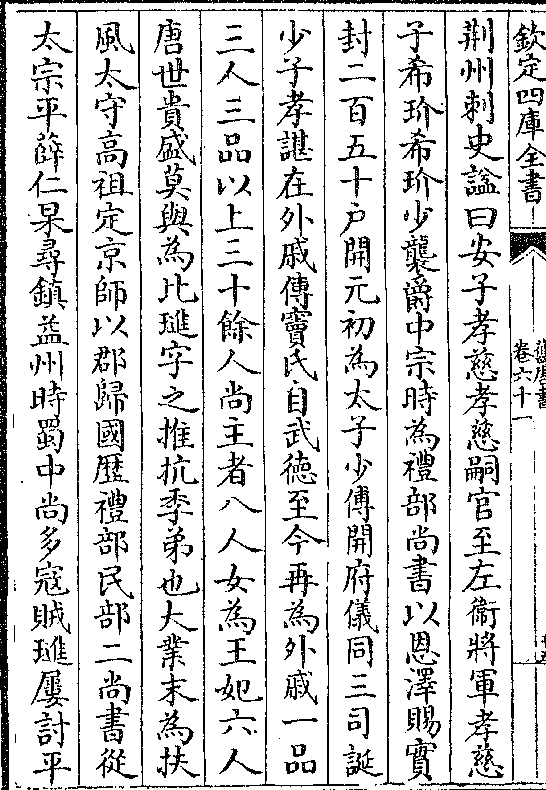 欽定四庫全書
舊唐書
卷六十一
荆州刺史諡曰安子孝慈孝慈嗣官至左衞將軍孝慈
子希玠希玠少襲爵中宗時為禮部尚書以恩澤賜實
封二百五十户開元初為太子少傅開府儀同三司誕
少子孝諶在外戚傳竇氏自武德至今再為外戚一品
三人三品以上三十餘人尚主者八人女為王妃六人
唐世貴盛莫與為比璡字之推抗季弟也大業末為扶
風太守高祖定京師以郡歸國歷禮部民部二尚書從
太宗平薛仁杲尋鎮益州時蜀中尚多寇賊璡屢討平